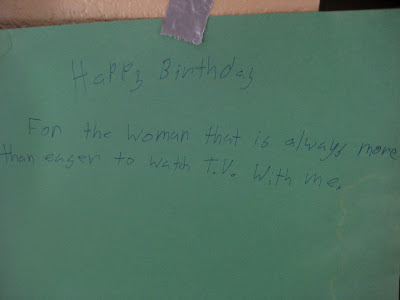 Happy Birthday
For the woman that is always more
than eager to watch T.V. With me.